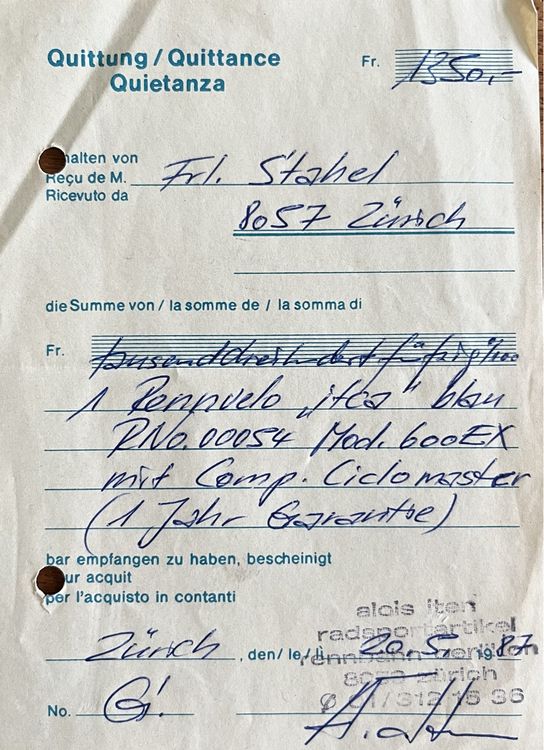 Quittung / Quittance
Quietanza
Fr. 1350.-
halten von
Reçu de M. Frl. Stahel
Ricevuto da
8057 Zürich
die Summe von / la somme de / la somma di
Fr. tausenddreihundertfünfzig %00
1 Rennvelo „itea" blau
R.No. 00054 Mod. 600EX
mit Comp. Ciclomaster
(1 Jahr Garantie)
bar empfangen zu haben, bescheinigt
ur acquit
per l'acquisto in contanti
alois iten
radsportartikel
Zürich, den / le / li 20.5. 1987
rennbahn oerlikon
zürich
No. G!